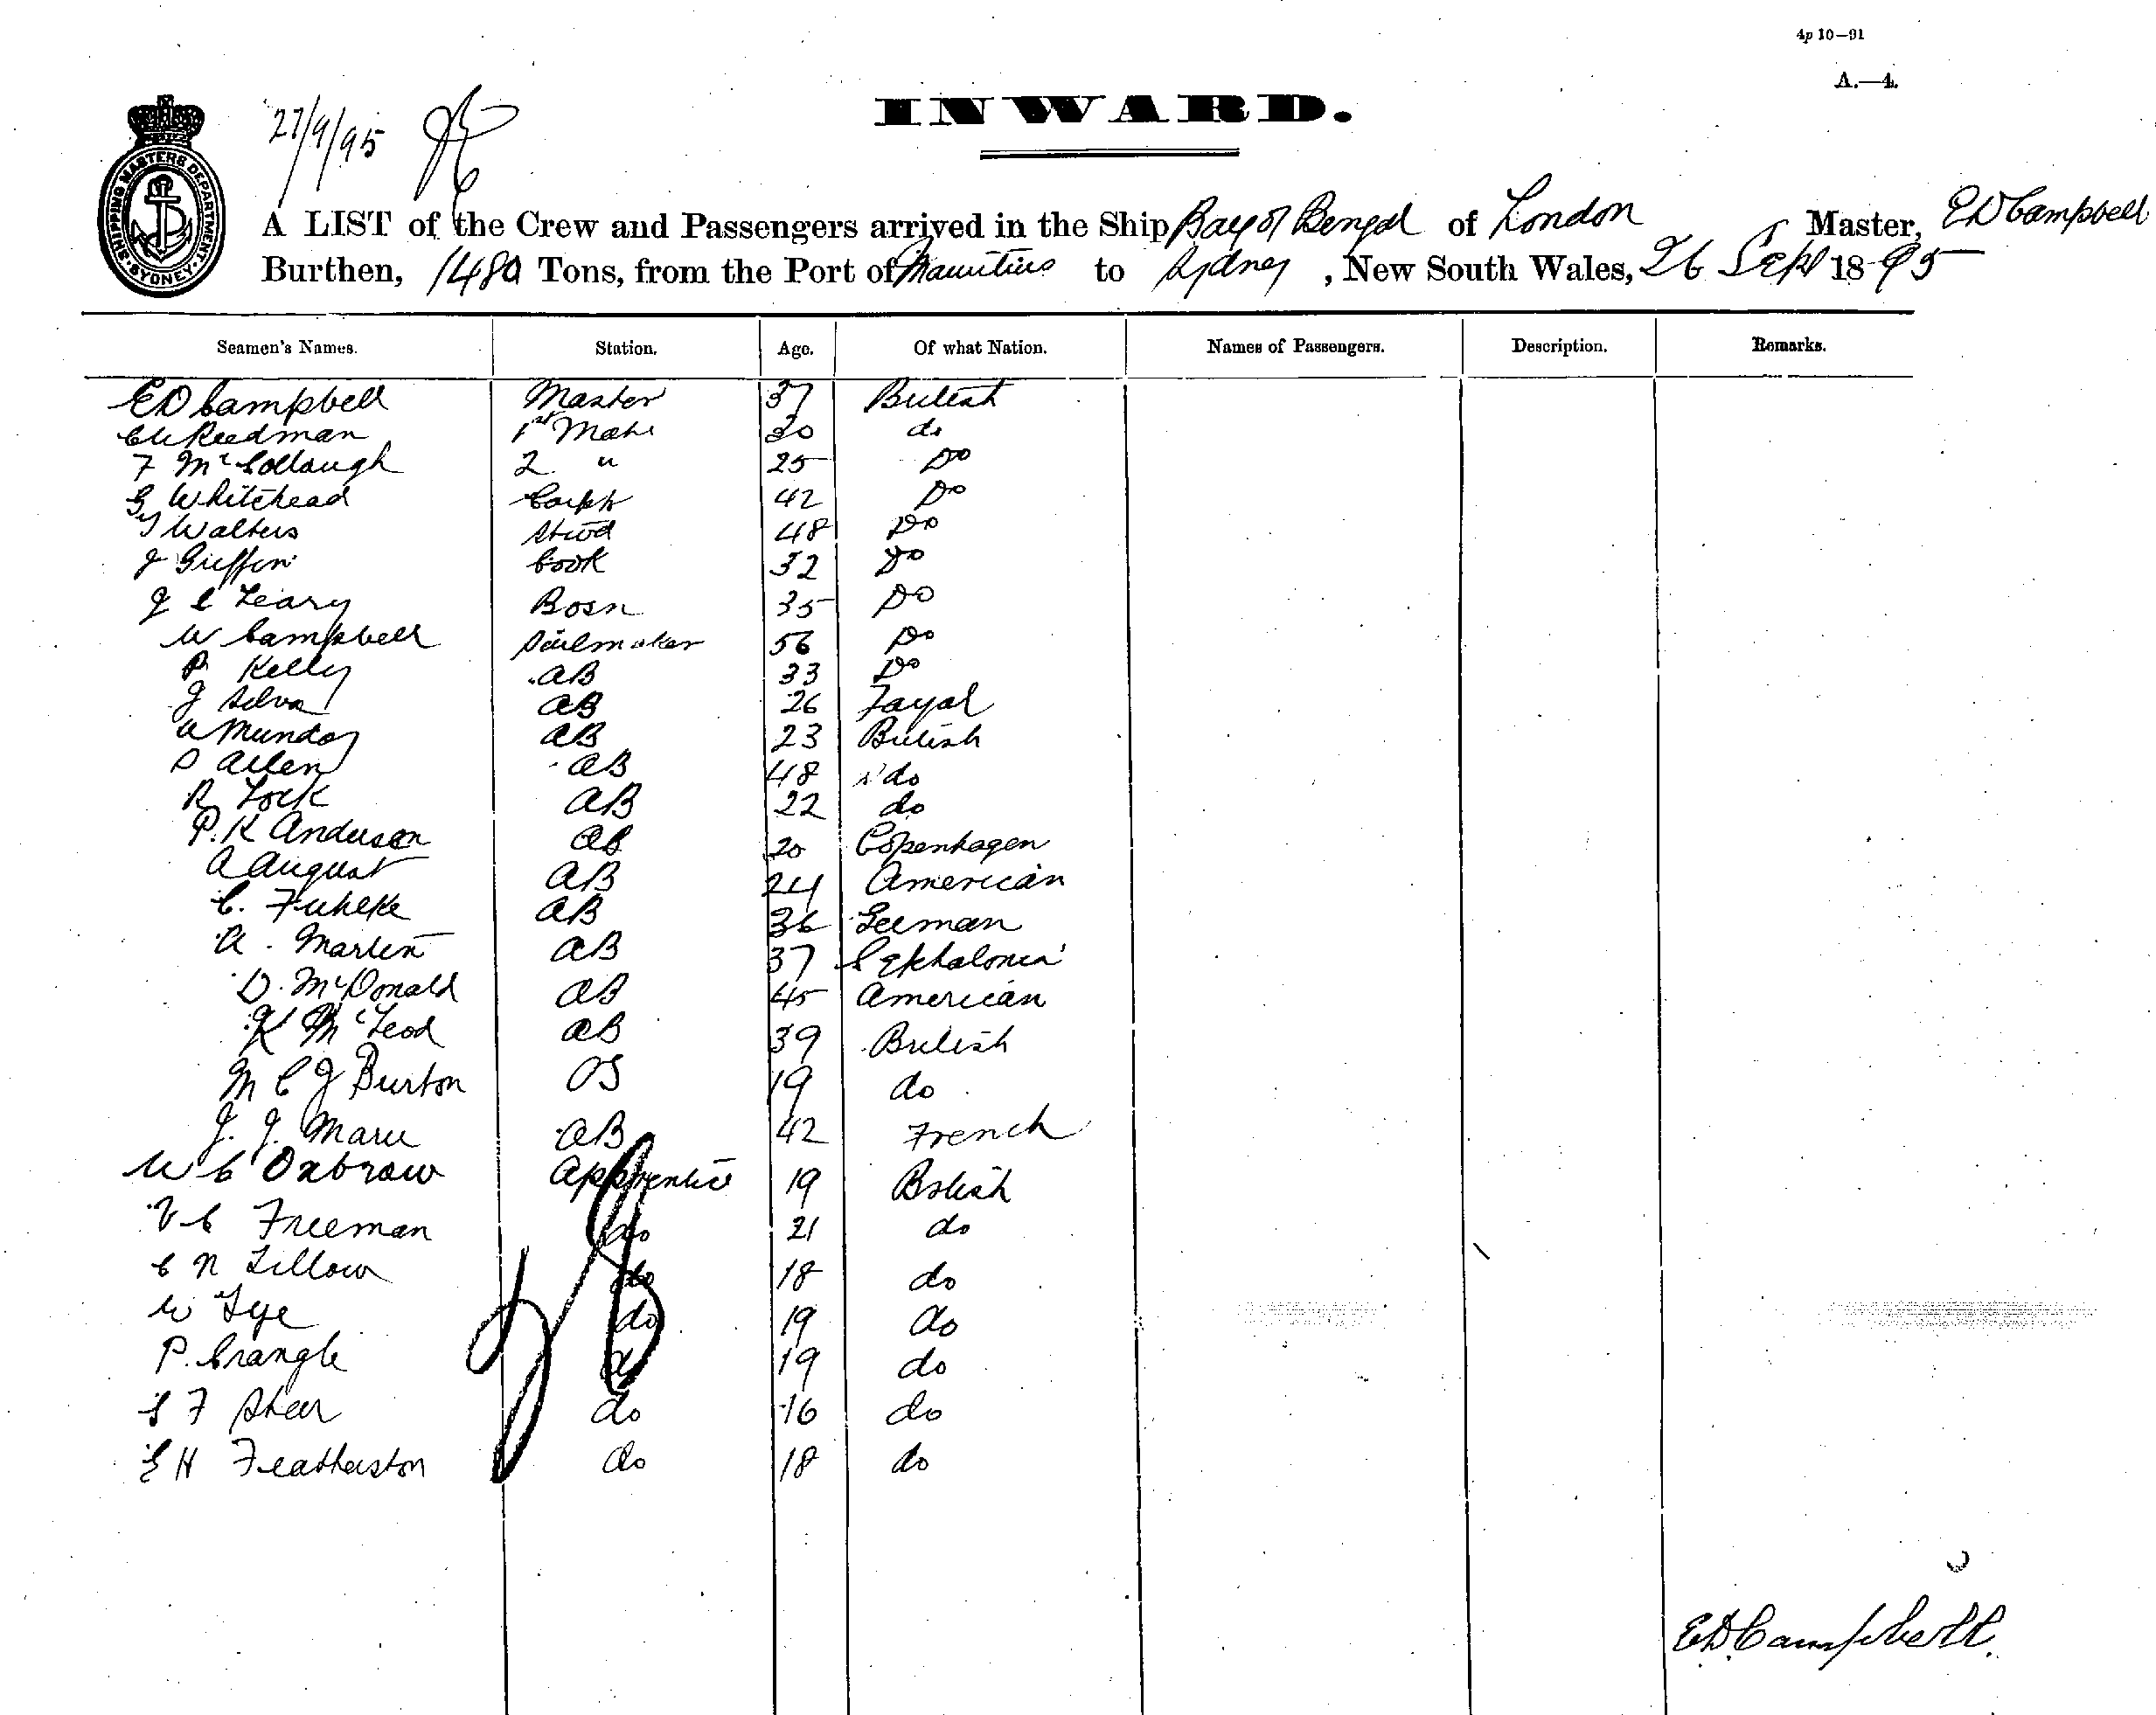 4p 10—91
A.—4.
27/9/95
INWARD.
SHIPPING MASTERS DEPARTMENT SYDNEY
A LIST of the Crew and Passengers arrived in the Ship Bay of Bengal of London Master, ED Campbell
Burthen, 1480 Tons, from the Port of Mauritius to Sydney, New South Wales, 26 Sept 1895
Seamen's Names. Station. Age. Of what Nation. Names of Passengers. Description. Remarks.
ED Campbell Master 37 British
Redman 1st Mate 30 do
F McCollaugh 2 " 25 Do
G Whitehead Carptr 42 Do
Walters Stwd 48 Do
J Griffin Cook 32 Do
J C Leary Bosn 35 Do
W Campbell Sailmaker 56 Do
P Kelly AB 33 Do
J Silva AB 26 Fayal
A Munday AB 23 British
D Allen AB 48 do
R Lock AB 22 do
P.K Anderson AB 20 Copenhagen
A August AB 24 American
C. Fuhlke AB 36 German
A. Martin AB 37 Cephalonia
D. McDonald AB 45 American
K McLeod AB 39 British
M C J Burton OS 19 do
J. J. Marie AB 42 French
W C Oxbrow Apprentice 19 British
V C Freeman do 21 do
C N Tillow do 18 do
W Tye do 19 do
P. Crangle do 19 do
F Sheer do 16 do
H Featherston do 18 do
ED Campbell.